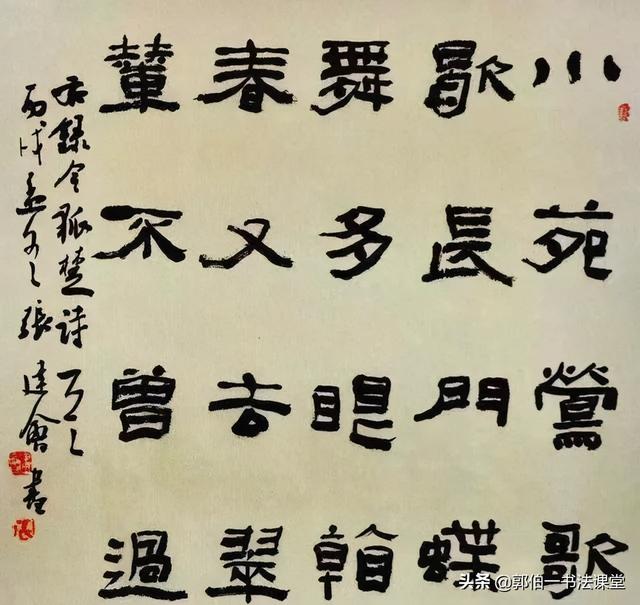 小苑鶯歌
歇長門蝶
舞多眼看
春又去翠
輦不曾過
右錄令狐楚詩
丙戌孟冬張建會書
头条 @郭伯一书法课堂